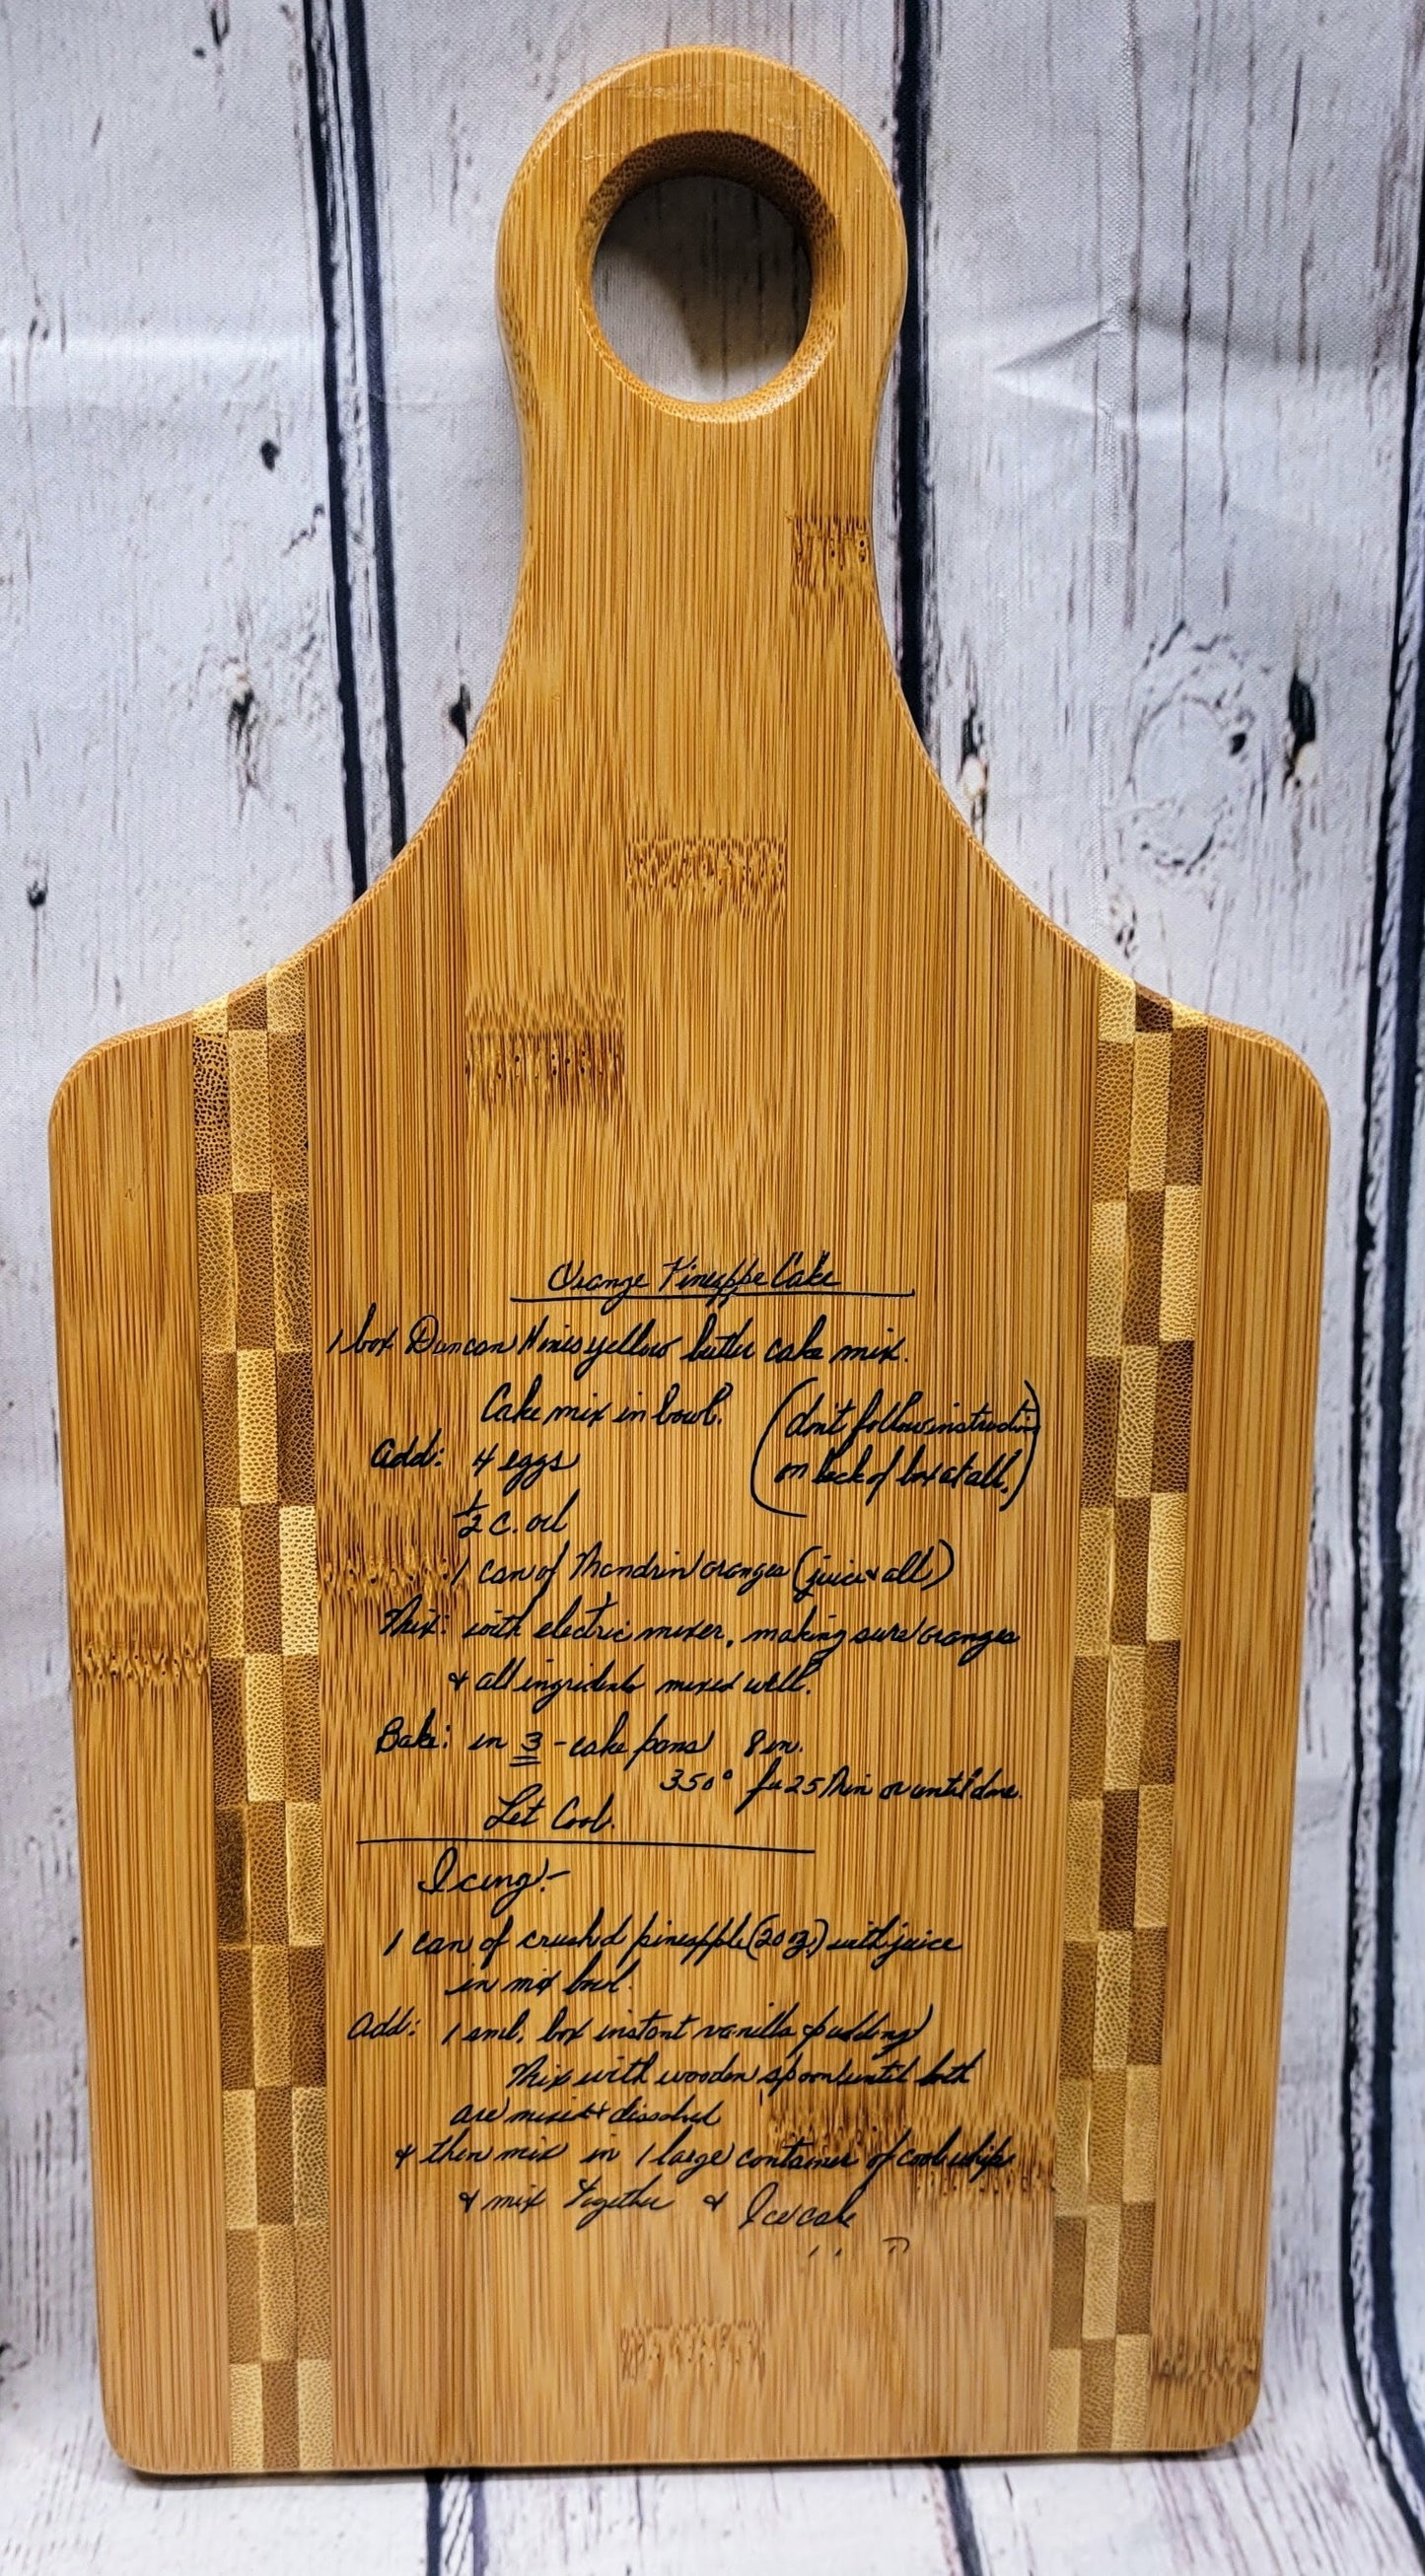 Orange Pineappe Cake
1 box Duncan Hines yellow butter cake mix.
Cake mix in bowl.
(don't follow instructions
on back of box at all.)
Add: 4 eggs
1/2 c. oil
1 can of Mandrin oranges (juice & all)
Mix: with electric mixer, making sure oranges
& all ingridents mixed well.
Bake: in 3 - cake pans 8 in.
350° for 25 Min or until done.
Let Cool.
Icing:-
1 can of crushed pineapple (20 oz) with juice
in mix bowl.
Add: 1 sml. box instant vanilla pudding
Mix with wooden spoon until both
are mixed & dissolved
& then mix in 1 large container of cool whip
& mix together & Ice cake